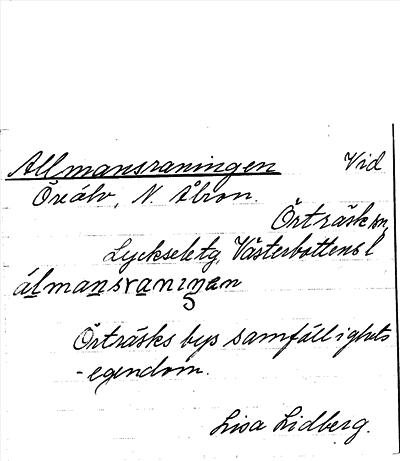 Allmansraningen Vid
Öreälv, N. Åbron.
Örträsk sn,
Lycksele tg, Västerbottens l
álmansranıŋan
Örträsks bys samfällighets
-egendom.
Lisa Lidberg.